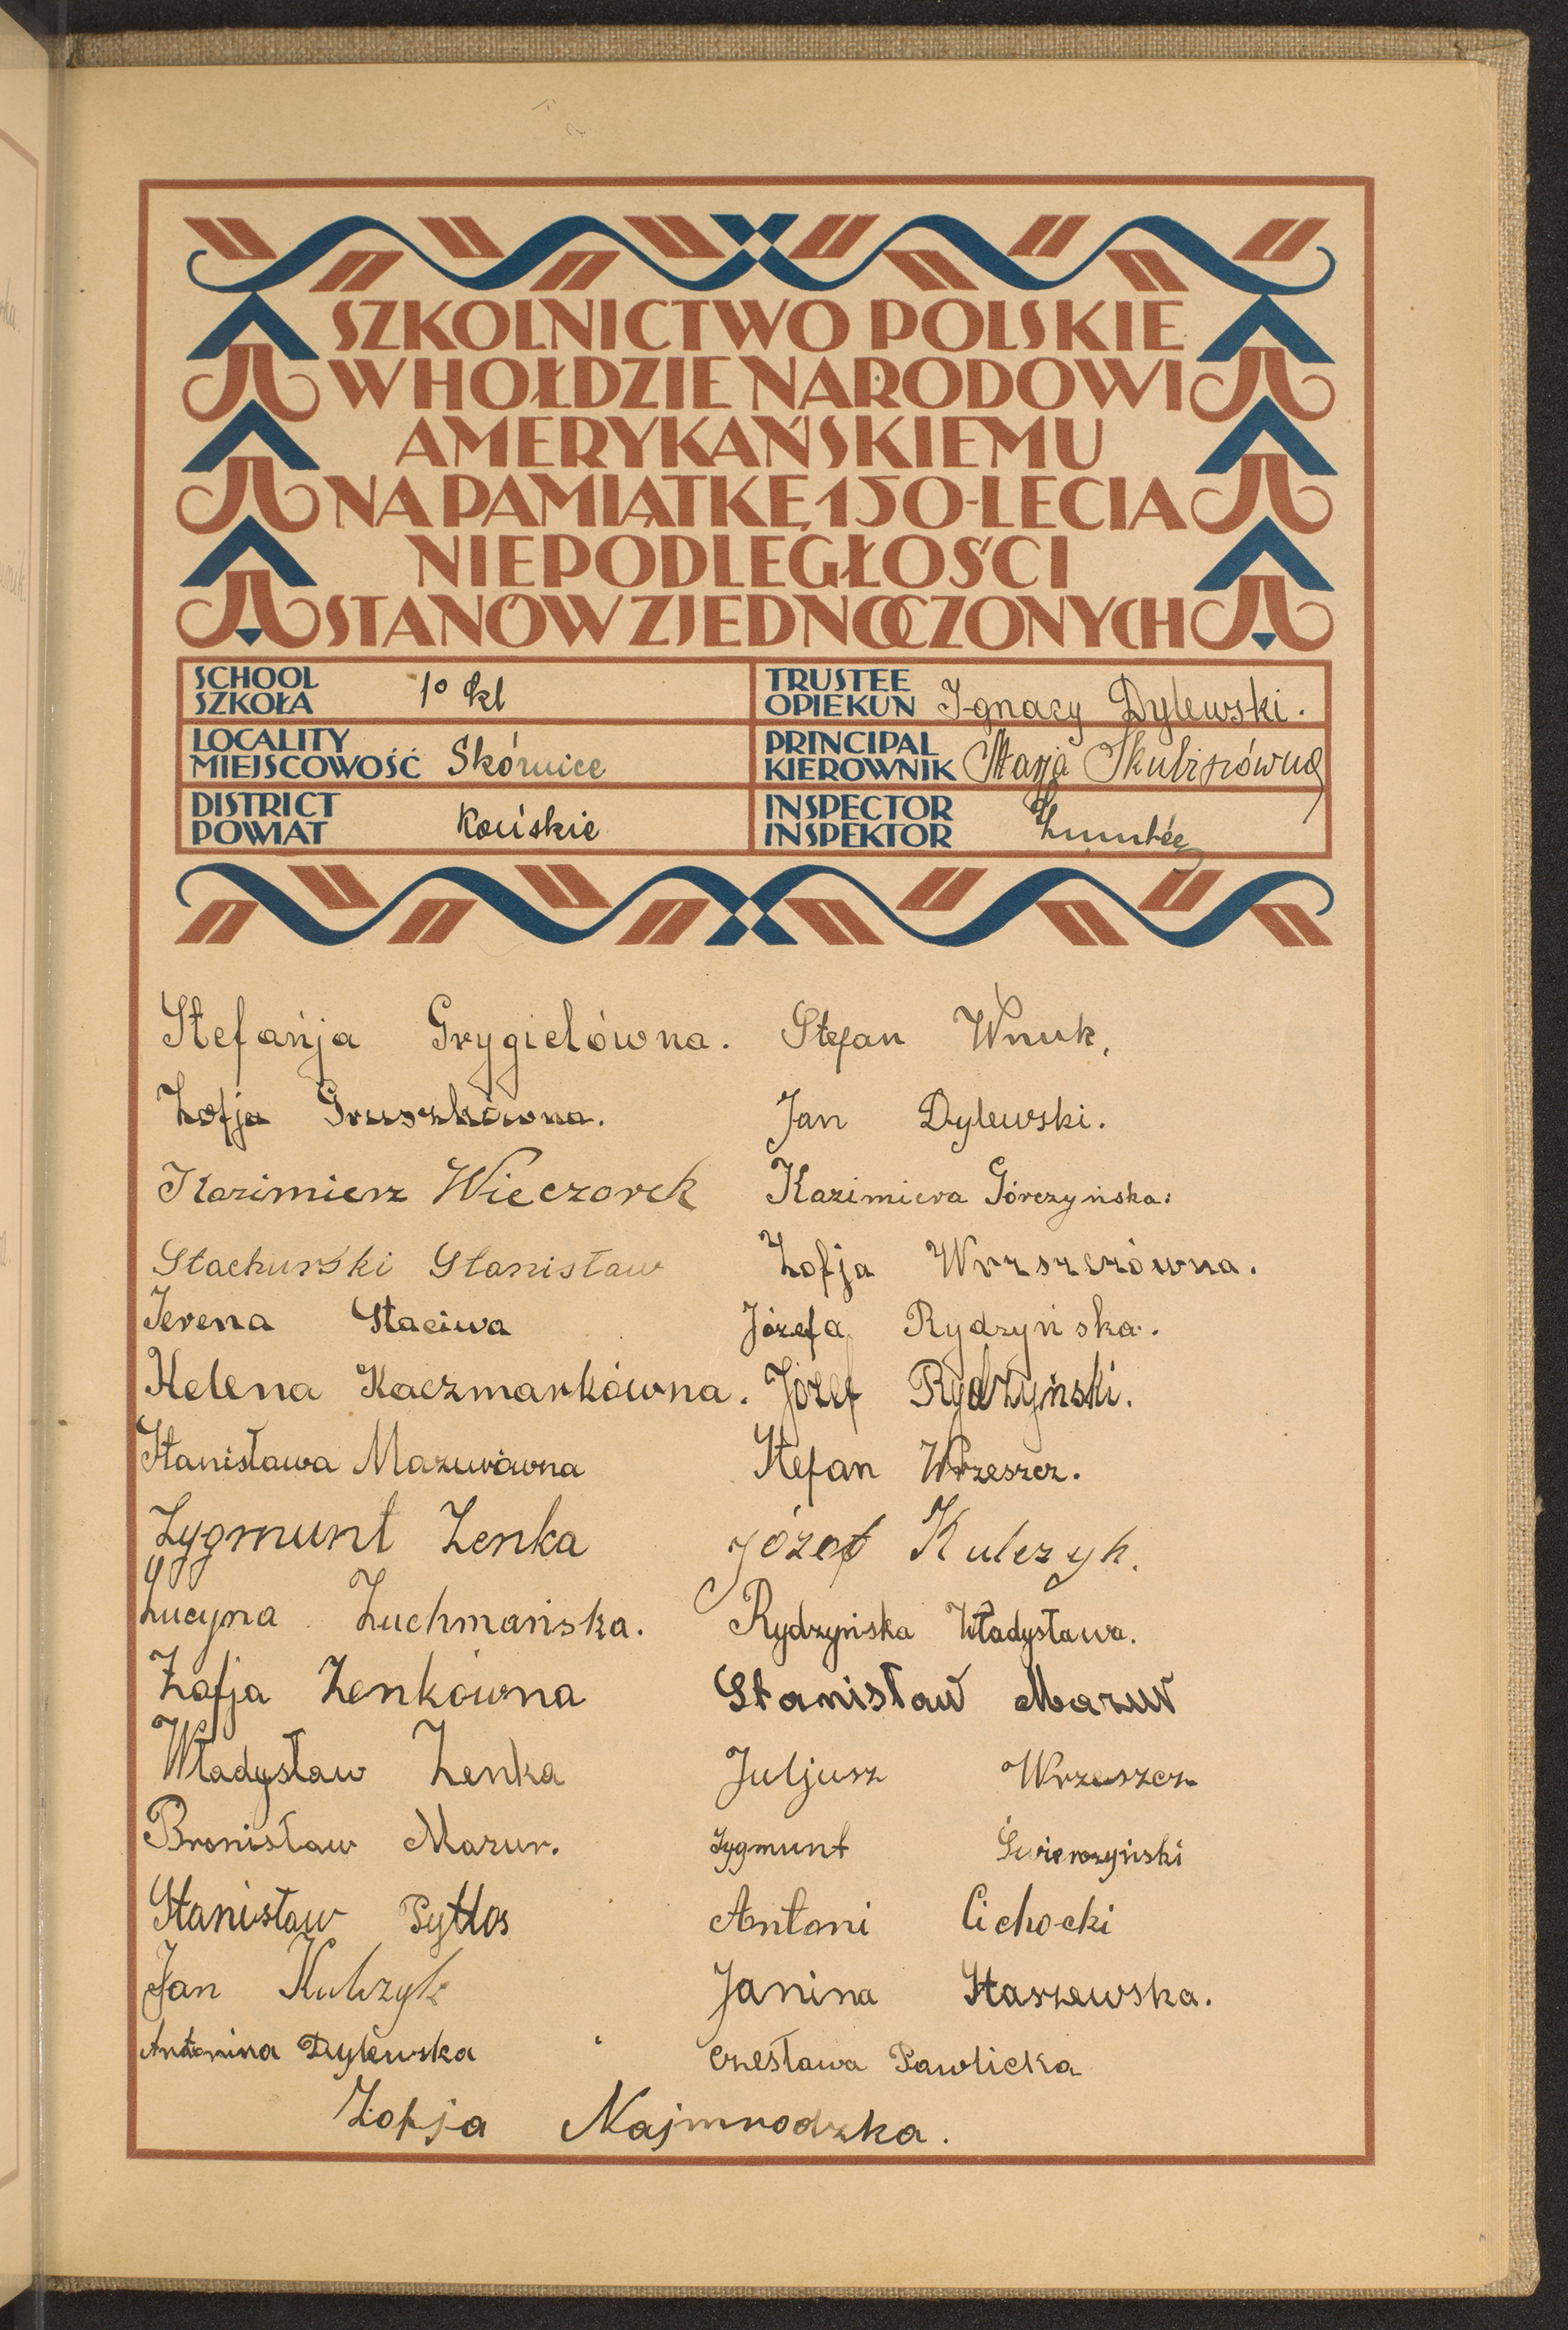 SZKOLNICTWO POLSKIE
W HOŁDZIE NARODOWI
AMERYKAŃSKIEMU
NA PAMIĄTKĘ 150-LECIA
NIEPODLEGŁOŚCI
STANÓW ZJEDNOCZONYCH
SCHOOL
SZKOŁA 1º kl
TRUSTEE
OPIEKUN Ignacy Dylewski.
LOCALITY
MIEJSCOWOŚĆ Skórnice
PRINCIPAL
KIEROWNIK Marja Skubiszówna
DISTRICT
POWIAT Końskie
INSPECTOR
INSPEKTOR
Stefańja Grygielówna.
Zofja Gruszkówna.
Kazimierz Wieczorek
Stachurski Stanisław
Irena Staciwa
Helena Kaczmarkówna.
Stanisława Mazurówna
Zygmunt Zenka
Lucyna Zuchmańska.
Zofja Zenkówna
Władysław Zenka
Bronisław Mazur.
Stanisław Pytlos
Jan Kulczyk
Antonina Dylewska
Stefan Wnuk.
Jan Dylewski.
Kazimiera Górczyńska.
Zofja Wrzszczówna.
Józefa Rydzyńska.
Józef Rydzyński.
Stefan Wrzeszcz.
Józef Kulczyk.
Rydzyńska Władysława.
Stanisław Mazur
Juljusz Wrzeszcz
Zygmunt Świerczyński
Antoni Cichocki
Janina Staszewska.
Czesława Pawlicka
Zofja Najmrodzka.